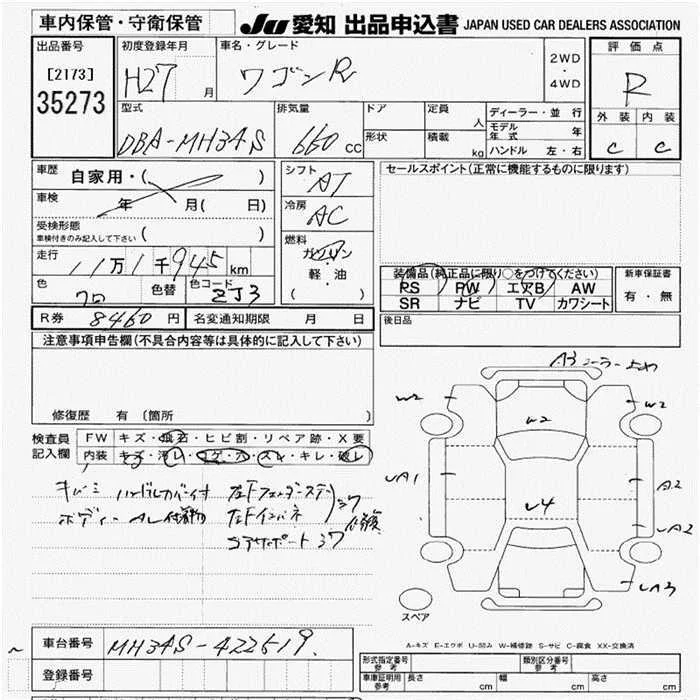 車内保管・守衛保管
JU 愛知 出品申込書 JAPAN USED CAR DEALERS ASSOCIATION
出品番号
[2173]
35273
初度登録年月
H27 月
車名・グレード
ワゴンR
2WD
・
4WD
評価点
R
外装 内装
C C
型式
DBA-MH34S
排気量
660 CC
ドア
形状
定員 人
積載 kg
ディーラー・並行
モデル年式 年
ハンドル 左・右
車歴
自家用・( )
車検
年 月( 日)
受検形態
車検付きのみ記入して下さい ( )
走行
11万1千945km
色
クロ
色替
色コード
ZJ3
シフト
AT
冷房
AC
燃料
ガソリン
軽・油
( )
セールスポイント(正常に機能するものに限ります)
装備品(純正品に限り○をつけてください)
PS PW エアB AW
SR ナビ TV カワシート
新車保証書
有・無
R券 8460円 名変通知期限 月 日
後日品
注意事項申告欄(不具合内容等は具体的に記入して下さい)
修復歴 有〔箇所 〕
検査員
記入欄
FW キズ・飛石・ヒビ割・リペア跡・X要
内装 キズ・汚レ・コゲ・穴・スレ・キレ・破レ
キバミ ハンドルカバー付
ボディー
左Fインパネ
修復
A3
W2
W2
W2
A1
A2
A2
A3
スペア
A-キズ E-エクボ U-凹み W-補修跡 S-サビ C-腐食 XX-交換済
車台番号 MH34S-422519
登録番号
形式指定番号
参考
類別区分番号
参考
車庫証明用
参考
長さ cm 幅 cm 高さ cm